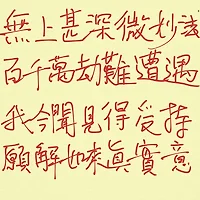 無上甚深微妙法
百千萬劫難遭遇
我今聞見得受持
願解如來真實意